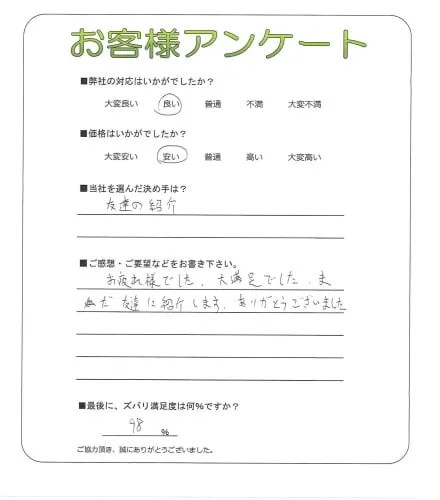 お客様アンケート
■弊社の対応はいかがでしたか？
大変良い 良い 普通 不満 大変不満
■価格はいかがでしたか？
大変安い 安い 普通 高い 大変高い
■当社を選んだ決め手は？
友達の紹介
■ご感想・ご要望などをお書き下さい。
お疲れ様でした、大満足でした、ま
だ 友達に紹介します、ありがとうございました
■最後に、ズバリ満足度は何%ですか？
98 %
ご協力頂き、誠にありがとうございました。